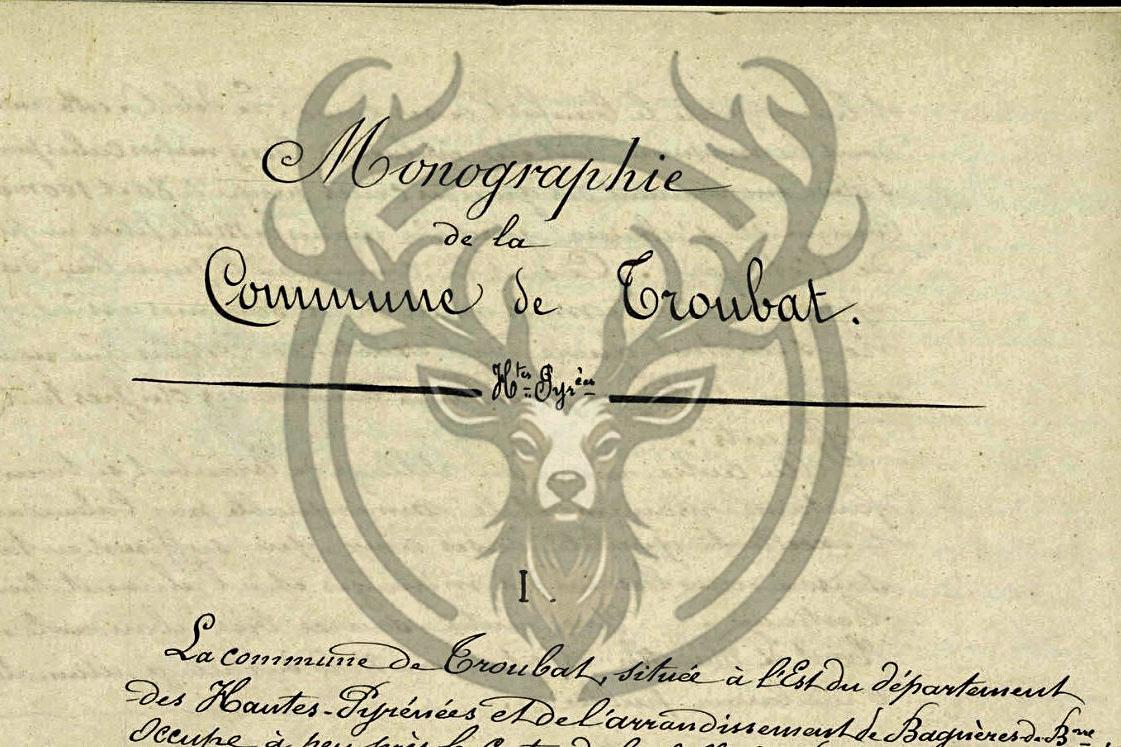 Monographie
de la
Commune de Troubat.
Htes Pyrées
I.
La commune de Troubat, située à l'Est du département
des Hautes-Pyrénées et de l'arrondissement de Bagnères-de-Bre,
Occupe à peu près le